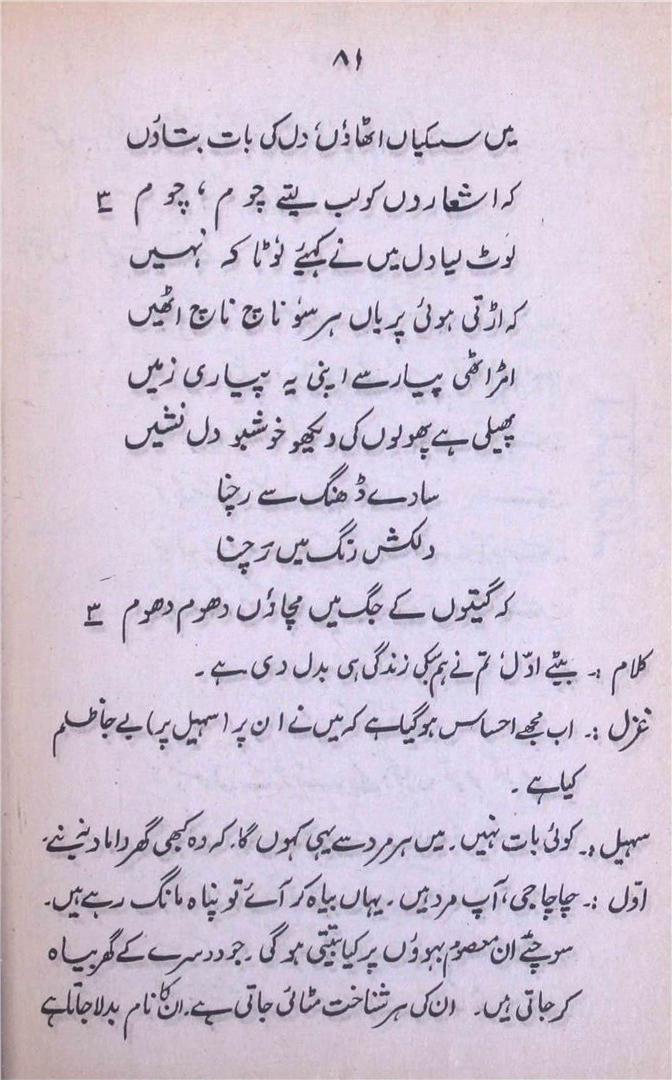 ۸۱
میں سسکیاں اٹھاؤں، دل کی بات بتاؤں
کہ اشعاروں کو لب لیتے چوم، چوم ۳
لوٹ لیا دل میں نے کہئے لوٹا کہ نہیں
کہ اڑتی ہوئی پریاں ہر سو ناچ ناچ اٹھیں
امڑ اٹھی پیار سے اپنی یہ پیاری زمیں
پھیلی ہے پھولوں کی دیکھو خوشبو دل نشیں
سادے ڈھنگ سے رچنا
دلکش رنگ میں رَچنا
کہ گیتوں کے جگ میں مچاؤں دھوم دھوم ۳
کلام :۔ بیٹے اوّل، تم نے ہم سب کی زندگی ہی بدل دی ہے۔
غزل :۔ اب مجھے احساس ہوگیا ہے کہ میں نے ان پر (سہیل پر) بے جا ظلم
کیا ہے۔
سہیل :۔ کوئی بات نہیں۔ میں ہر مرد سے یہی کہوں گا، کہ وہ کبھی گھر داماد نہ بنے۔
اوّل :۔ چاچا جی، آپ مرد ہیں۔ یہاں بیاہ کر آئے تو پناہ مانگ رہے ہیں۔
سوچئے ان معصوم بہوؤں پر کیا بیتتی ہوگی۔ جو دوسرے کے گھر بیاہ
کر جاتی ہیں۔ ان کی ہر شناخت مٹائی جاتی ہے۔ ان کا نام بدلا جاتا ہے